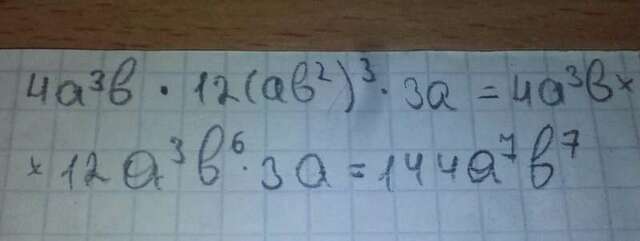 4a³b · 12(ab²)³ · 3a = 4a³b ×
× 12a³b⁶ · 3a = 144a⁷b⁷